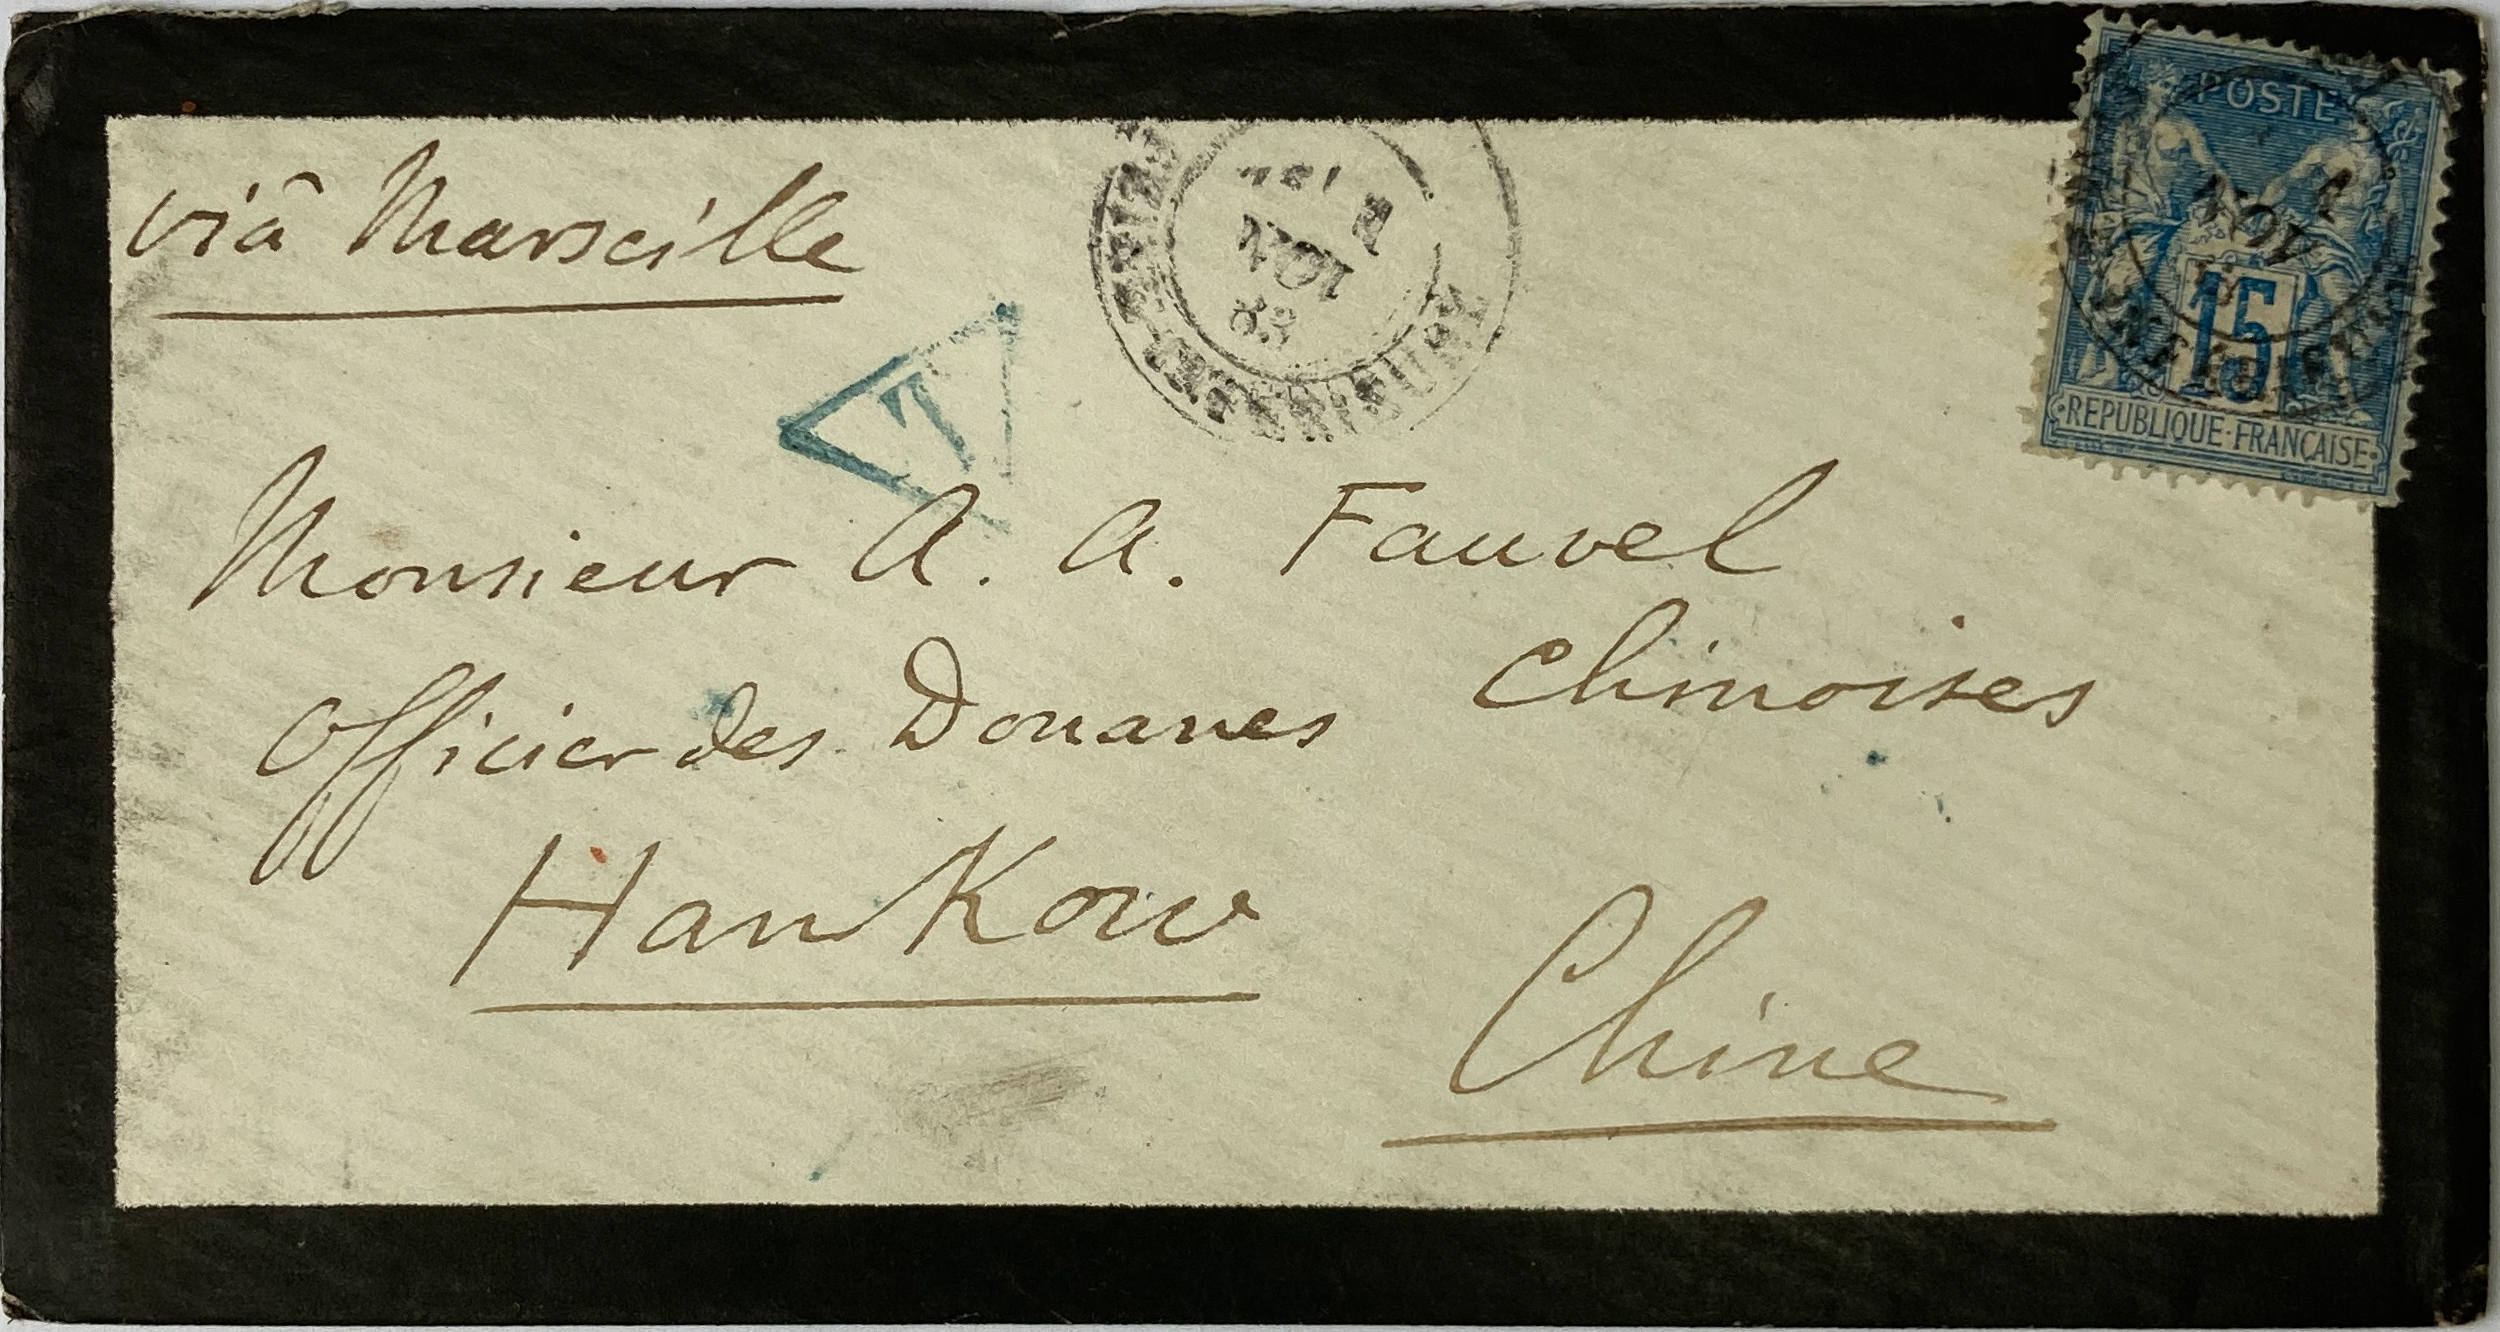 viâ Marseille
POSTES
15
REPUBLIQUE·FRANÇAISE
NOV
83
NOV
T
Monsieur A. A. Fauvel
Officier des Douanes Chinoises
HanKow
Chine